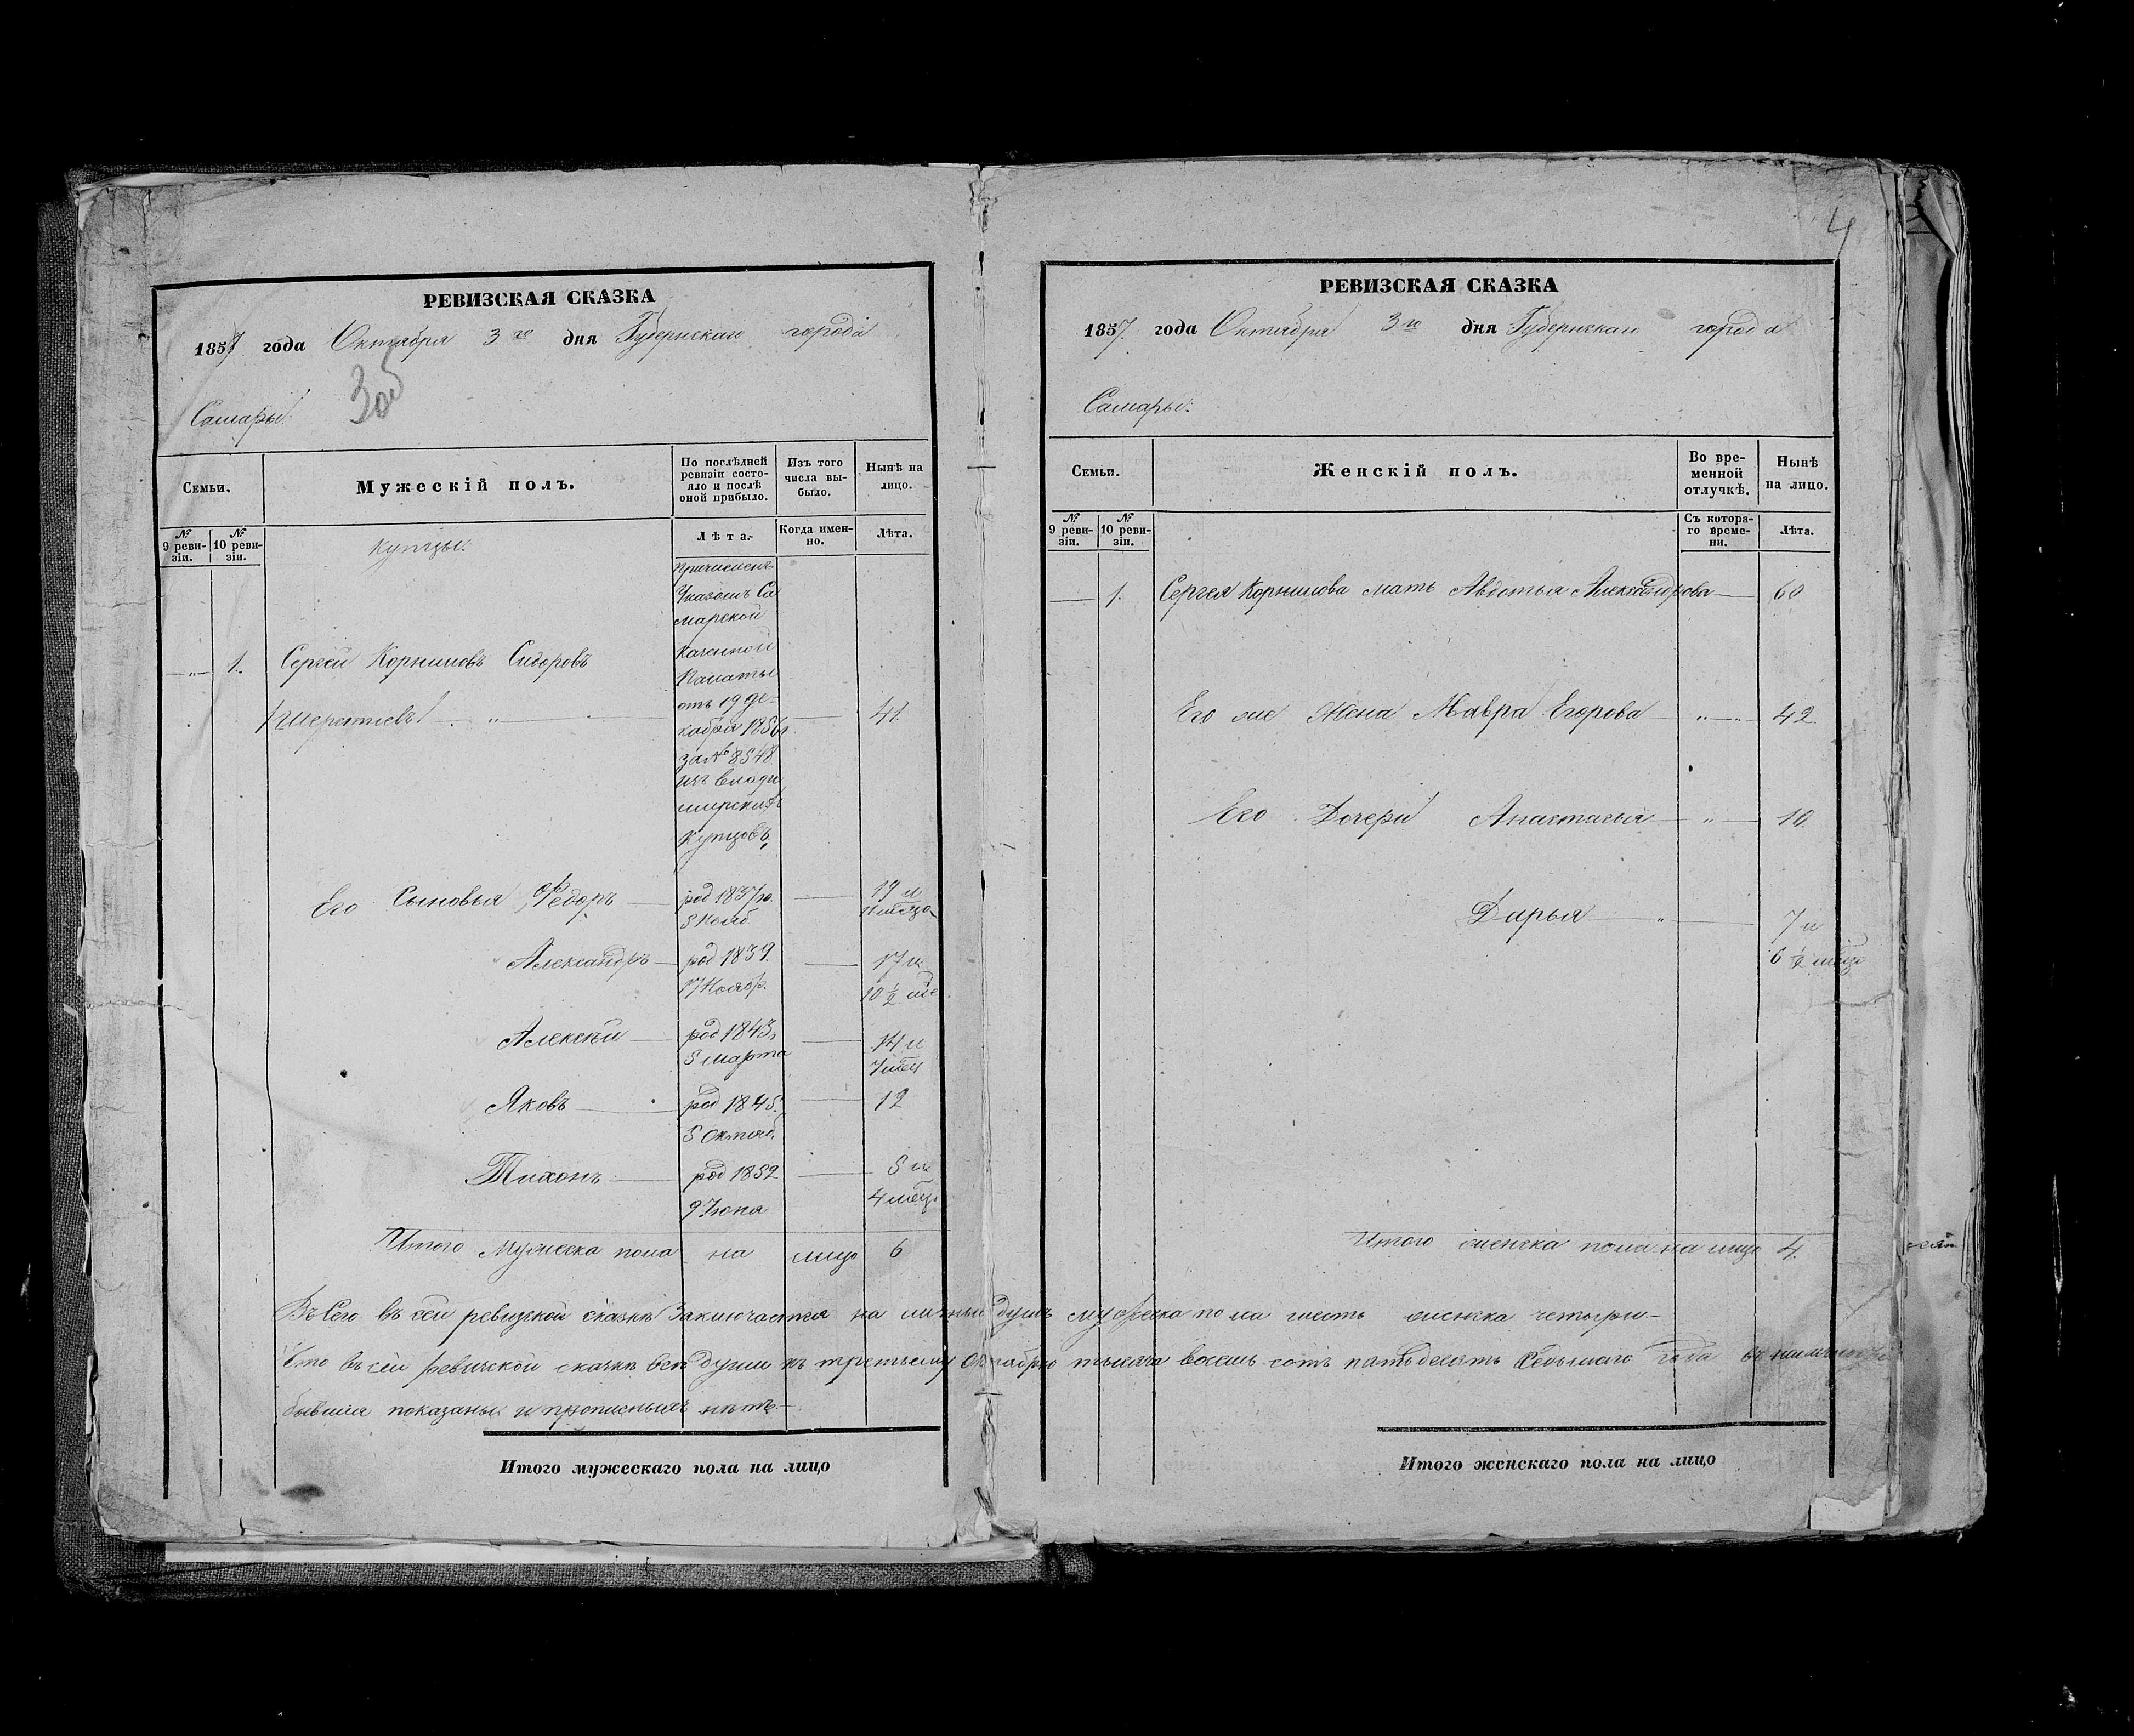 4
РЕВИЗСКАЯ СКАЗКА
1857 года Октября 3го дня Губернскаго города
Самары.
3об
Семьи.
Мужескій полъ.
По послѣдней ревизіи состояло и послѣ оной прибыло.
Изъ того числа выбыло.
Нынѣ на лицо.
№ 9 ревизіи.
№ 10 ревизіи.
Лѣта.
Когда именно.
Лѣта.
Купцы.
Причисленъ
Указомъ Са
марской
Казенной
Палаты
отъ 19 де-
кабря 1856 г.
за № 8548
изъ влади
мирскихъ
Купцовъ,
— „ — 1. Сергей Корниловъ Сидоровъ
Шерстневъ — „ — 41.
Его Сыновья Федоръ — род 1837 го. — 19 и
11 мѣсяцо
Александръ — род 1839. — 17 и
17 Ноябр. 10 ½ мѣ
Алексѣй — род 1843. — 14 и
5 марта 7 мѣц
Яковъ — род 1845. — 12
5 Октяб.
Тихонъ — род 1852 — 5 и
9 Іюня 4 мѣсц.
Итого Мужеска пола на лицо 6
РЕВИЗСКАЯ СКАЗКА
1857. года Октября 3го дня Губернскаго города
Самары.
Семьи.
Женскій полъ.
Во временной отлучкѣ.
Нынѣ на лицо.
№ 9 ревизіи.
№ 10 ревизіи.
Съ котораго времени.
Лѣта.
— 1. Сергея Корнилова мать Авдотья Александрова — 60
Его же Жена Мавра Егорова — „ — 42
Его Дочери Анастасья — „ — 10
Дарья — „ — 7 и
6 ½ мѣсц
Итого женска пола на лицо 4.
Въсего въ сей ревизкой сказкѣ заключается на личныи душъ мужеска пола шесть женска четыри. —
Что въ сей ревизской сказкѣ всѣ души къ третьему Октябрю тысяча восемь сотъ пятьдесятъ седьмаго года въ
бывшия показаны и прописныхъ нѣтъ —
Итого мужескаго пола на лицо
Итого женскаго пола на лицо